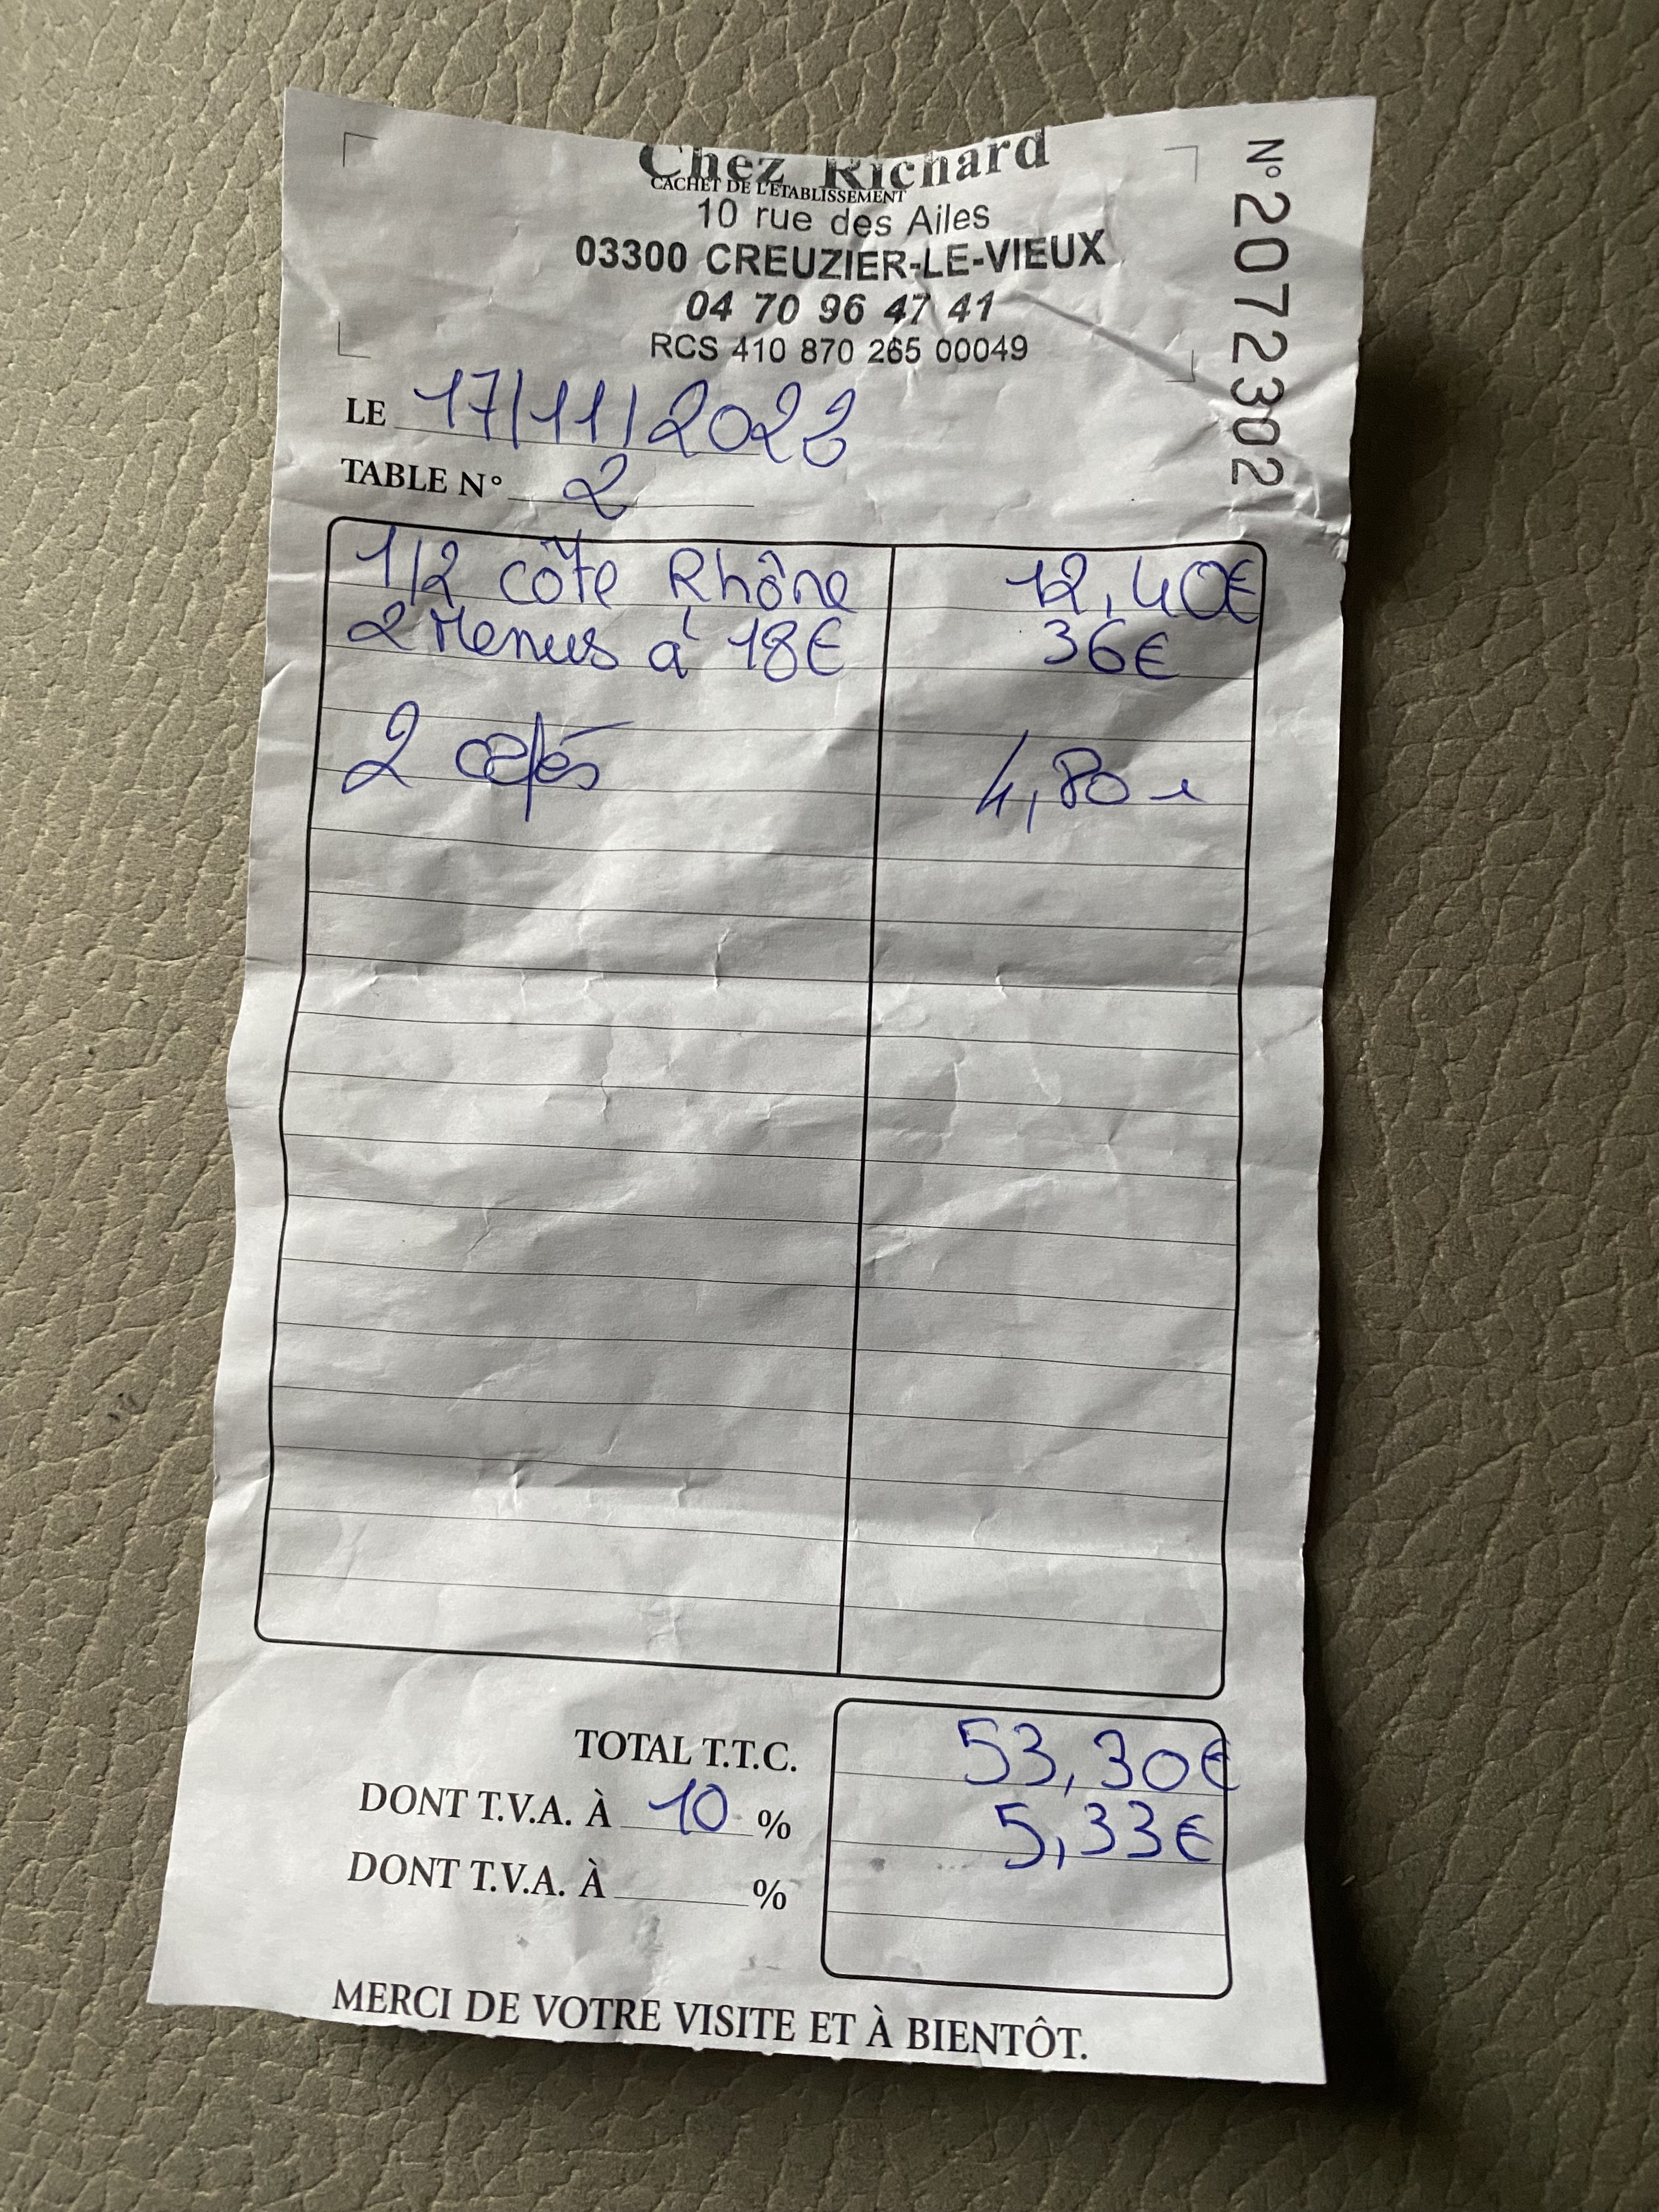 Chez Richard
CACHET DE L'ETABLISSEMENT
10 rue des Ailes
03300 CREUZIER-LE-VIEUX
04 70 96 47 41
RCS 410 870 265 00049
N° 2072302
LE 17/11/2023
TABLE N° 2
1/2 côte Rhône 12,40€
2 Menus à 18€ 36€
2 cafés 4,80 €
TOTAL T.T.C. 53,30€
DONT T.V.A. À 10 % 5,33€
DONT T.V.A. À %
MERCI DE VOTRE VISITE ET À BIENTÔT.